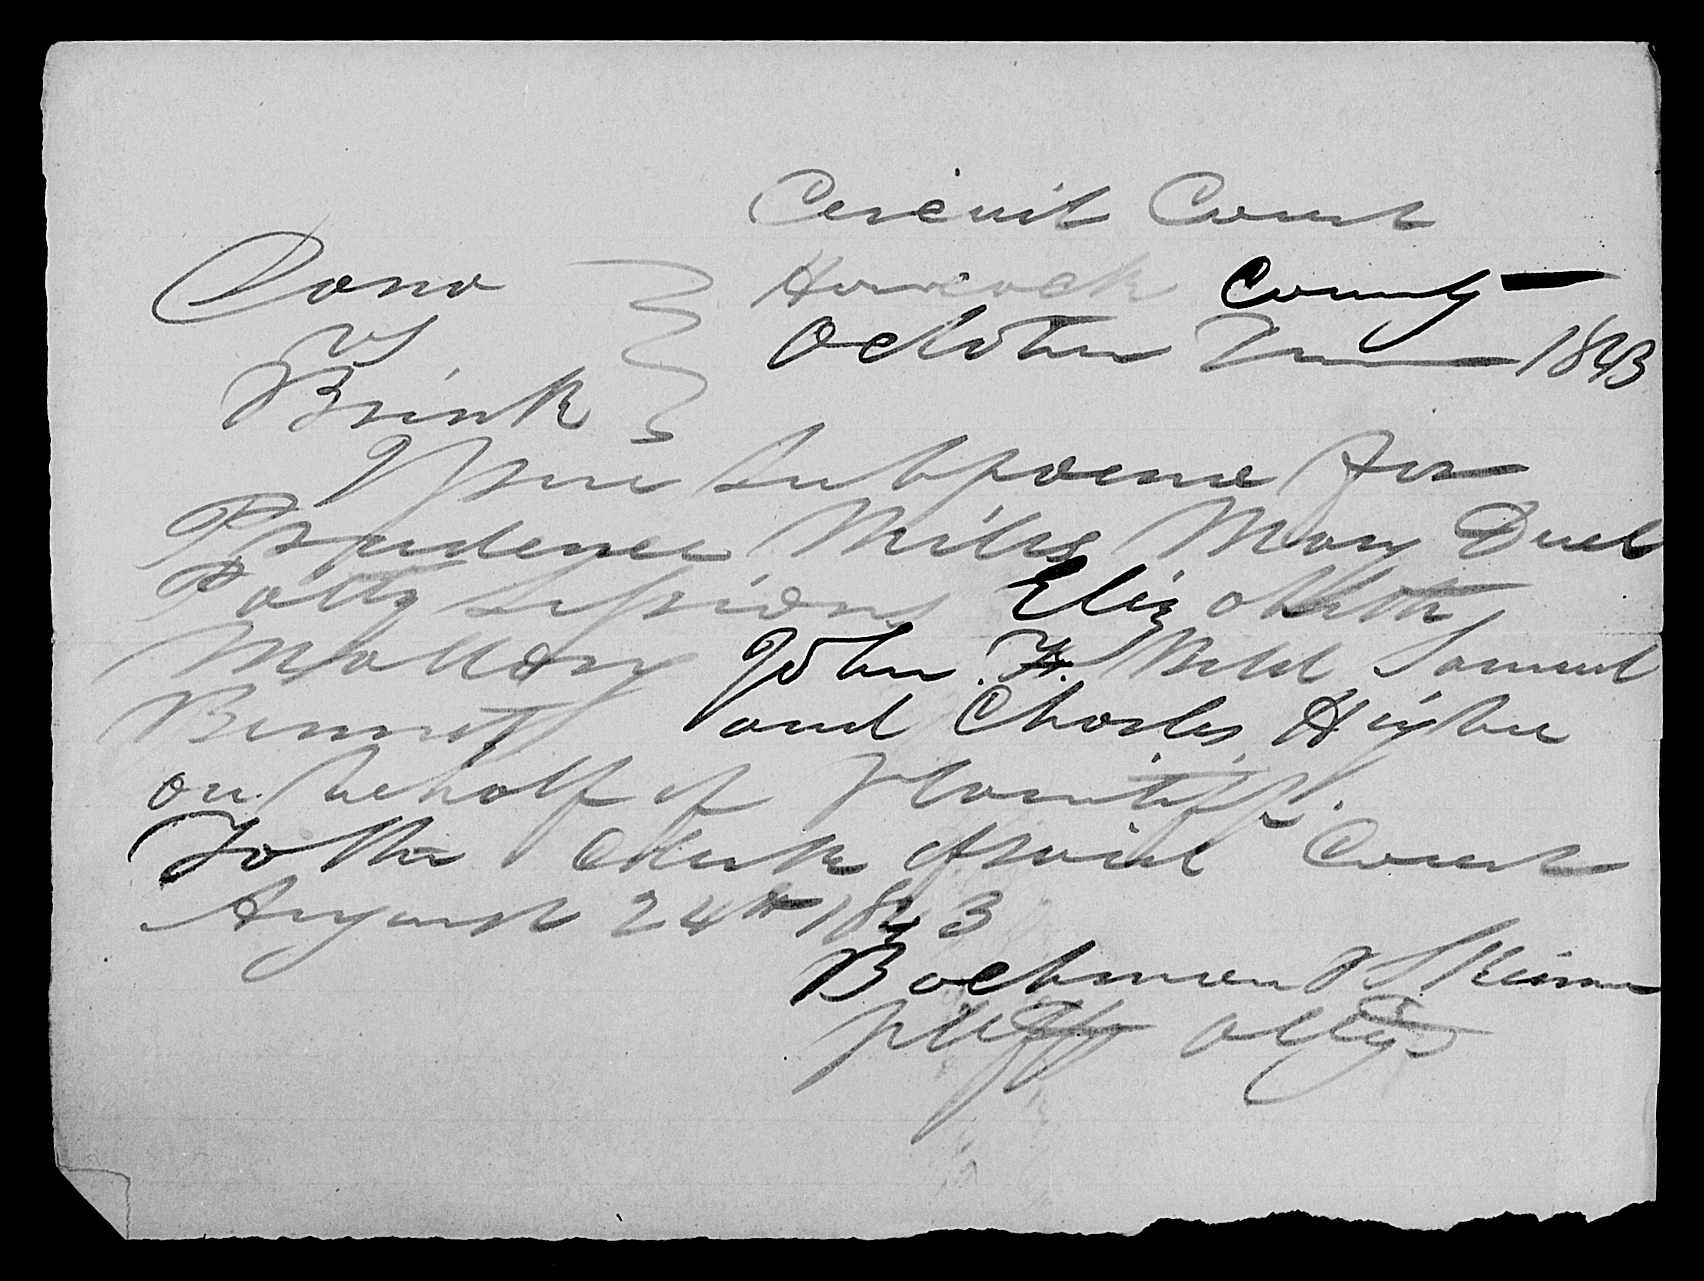 Circuit Court
Dana Hancock County
vs October Term 1843
Brink
Issue Subpoena for
Prudence Miles Mary Duel
Patty Sessions Elizabeth
Mallory John F. Weld Samuel
Bennett and Charles Higbee
on behalf of Plaintiff.
To the Clerk of said Court
August 24th 1843
Bachman & Skinner
pltffs attys